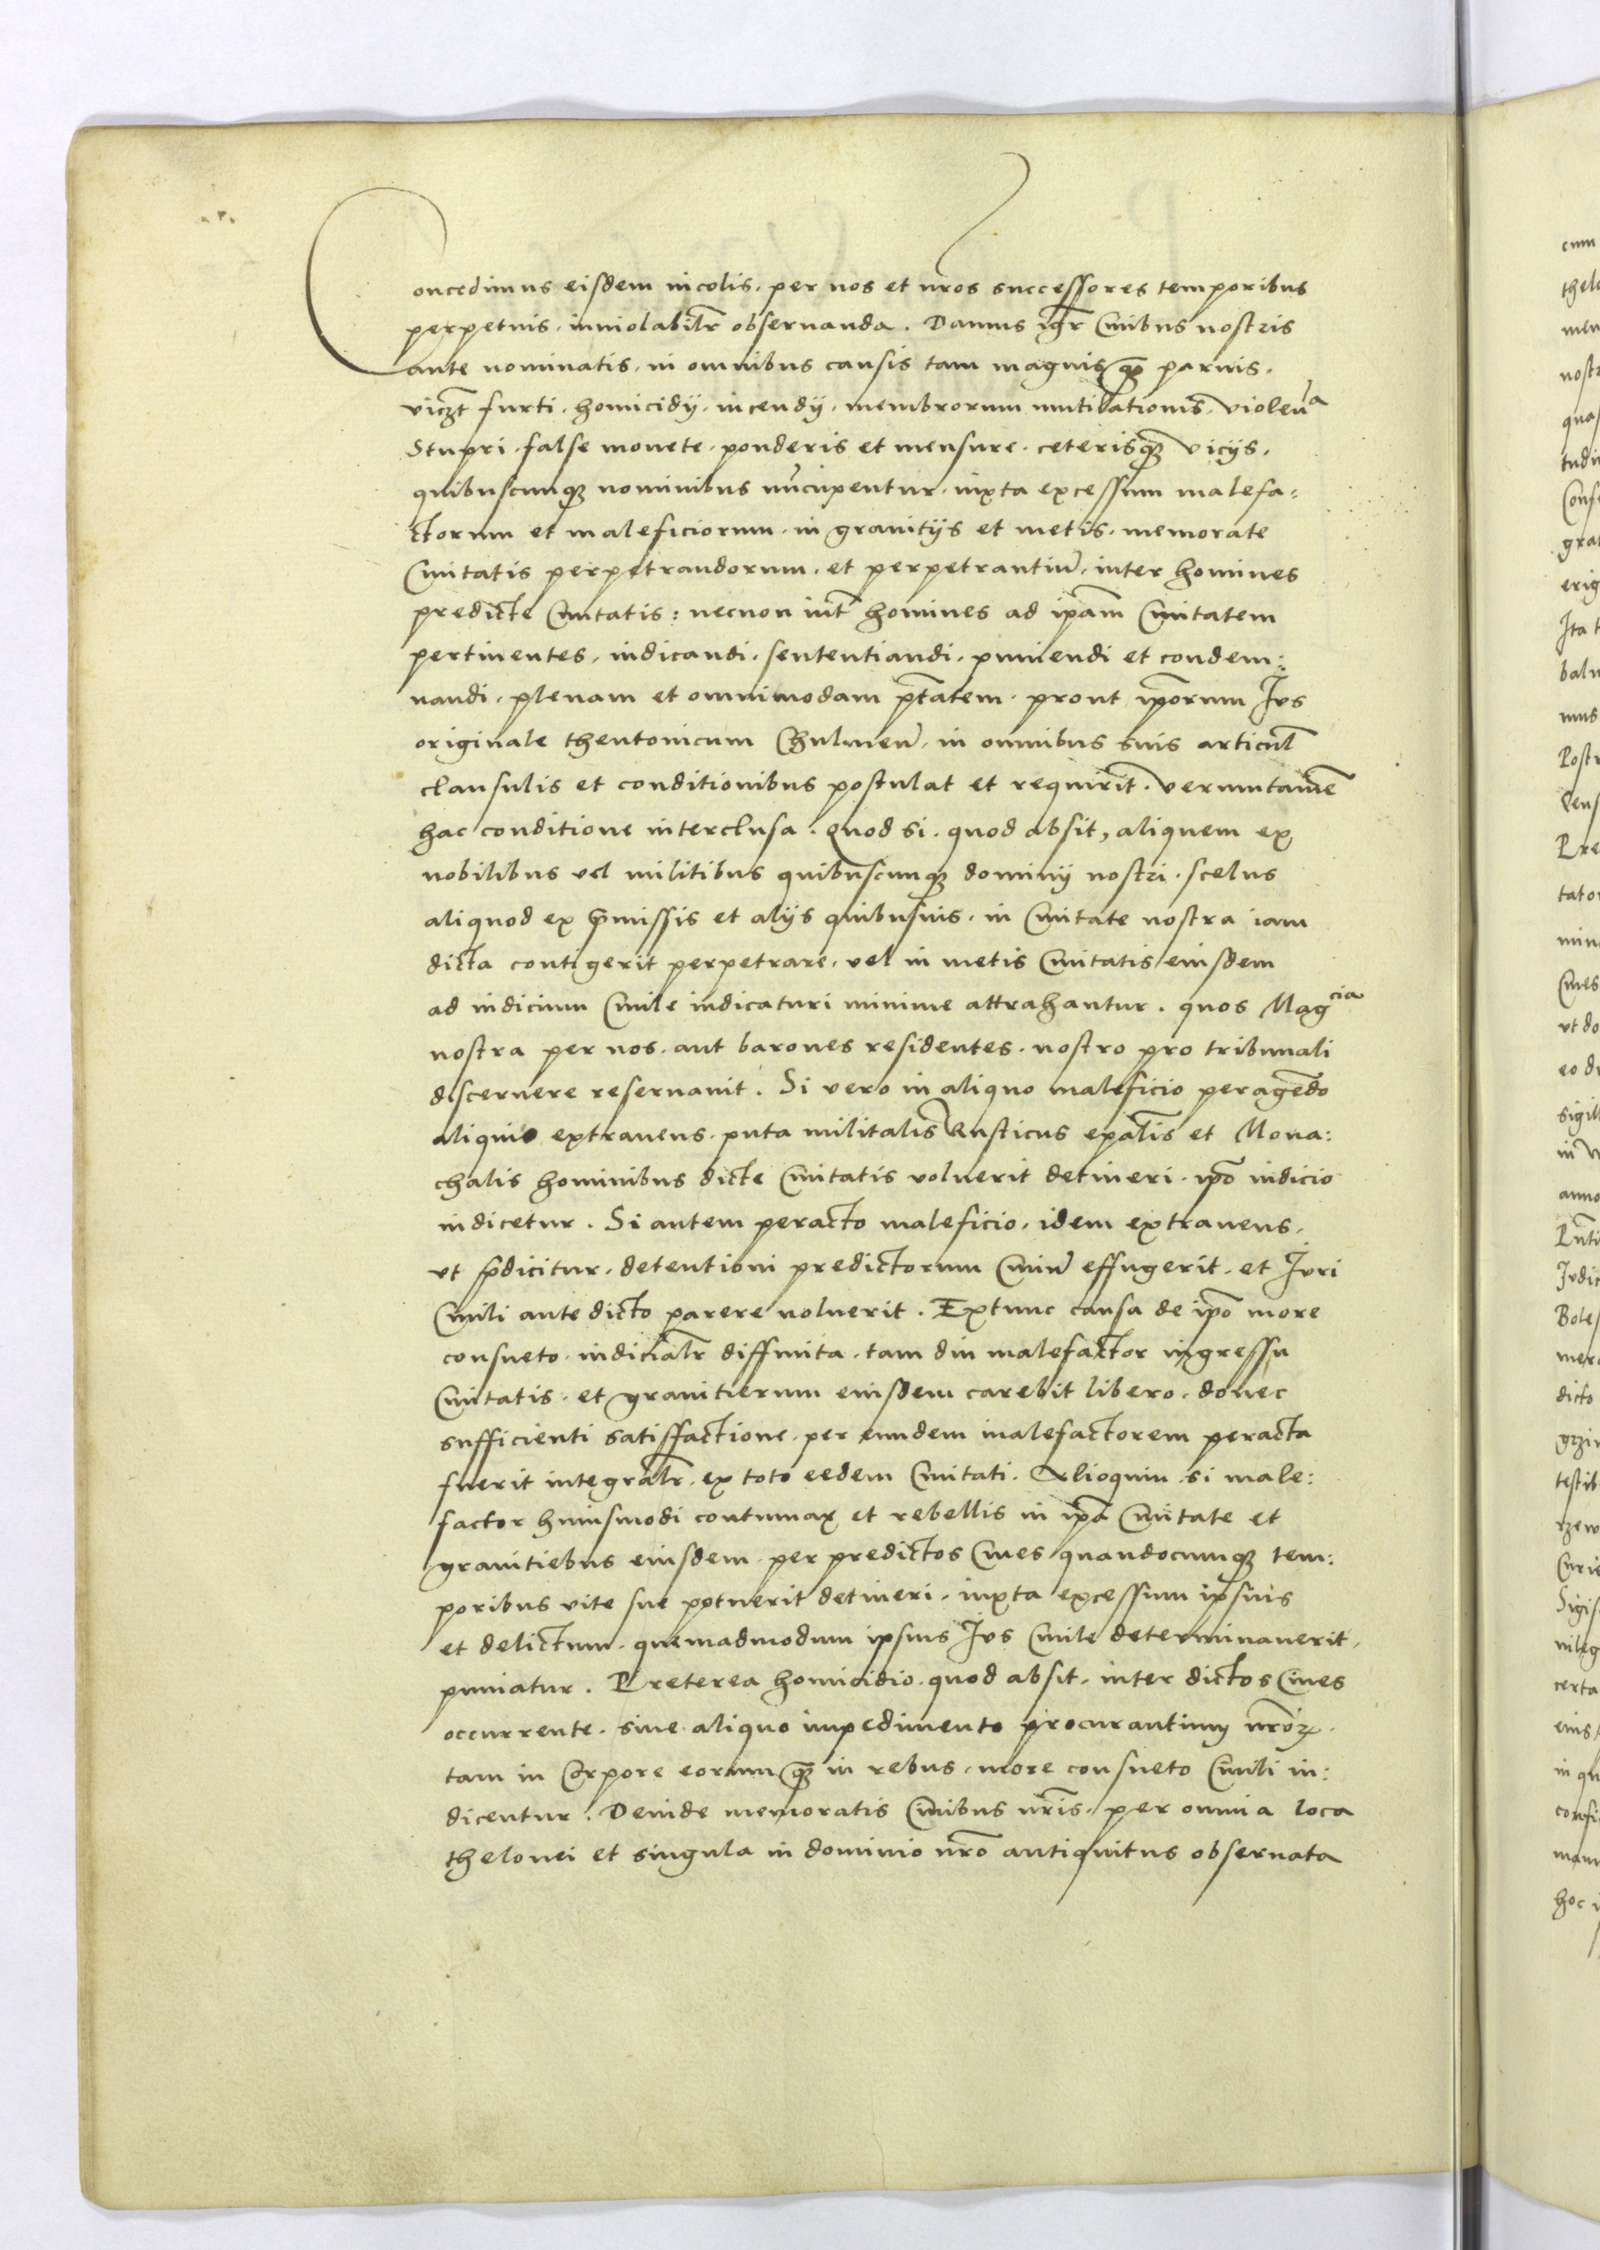 Concedimus eisdem incolis, per nos et nr̄os successores temporibus
perpetuis, inuiolabilr̄ obseruanda. Damus igr̄ Ciuibus nostris
ante nominatis, in omnibus causis tam magnis qͣ paruis,
viczt furti, homicidij, incendij, membrorum mutilationis, violenᵃ
Stupri, false monete, ponderis et mensure, ceterisqꝫ vicijs,
quibuscunqꝫ nominibus nūcupentur, iuxta excessum malefa:
ctorum et maleficiorum, in granitijs et metis, memorate
Ciuitatis perpetrandorum, et perpetrantiū, inter homines
predicte Ciuitatis: necnon int̄ homines ad ip̄am Ciuitatem
pertinentes, iudicandi, sententiandi, puniendi et condem:
nandi, plenam et omnimodam pt̄atem, prout ip̄orum Jus
originale theutonicum Chulmeñ, in omnibus suis articul̄
clausulis et conditionibus postulat et requirit. verumtamē
hac conditione interclusa. Quod si, quod absit, aliquem ex
nobilibus vel militibus quibuscunqꝫ dominij nostri, scelus
aliquod ex p̄missis et alijs quibusuis, in Ciuitate nostra iam
dicta contigerit perpetrare, vel in metis Ciuitatis eiusdem
ad iudicium Ciuile iudicaturi minime attrahantur, quos Magᶜⁱᵃ
nostra per nos, aut barones residentes, nostro pro tribunali
discernere reseruauit. Si vero in aliquo maleficio peragēdo
aliquis extraneus, puta militalis Rusticus ep̄alis et Mona:
chalis hominibus dicte Ciuitatis voluerit detineri, ip̄o iudicio
iudicetur. Si autem peracto maleficio, idem extraneus,
vt p̄dicitur, detentioni predictorum Ciuiū effugerit, et Juri
Ciuili ante dicto parere noluerit. Extunc causa de ip̄o more
consueto, iudicialr̄ diffinita, tam diu malefactor ingressu
Ciuitatis, et granitierum eiusdem carebit libero, donec
sufficienti satisfactione, per eundem malefactorem peracta
fuerit integralr̄, ex toto eedem Ciuitati. Alioquin, si male:
factor huiusmodi contumax et rebellis in ip̄a Ciuitate et
granitiebus eiusdem, per predictos Ciues quandocunqꝫ tem:
poribus vite sue potuerit detineri, iuxta excessum ipsius
et delictum, quemadmodum ipsius Jus Ciuile determinauerit,
puniatur. Preterea homicidio, quod absit, inter dictos Ciues
occurrente, sine aliquo impedimento procurantium nr̄oꝝ,
tam in Corpore eorum qꝫ in rebus, more consueto Ciuili iu:
dicentur. Deinde memoratis Ciuibus nr̄is, per omnia loca
thelonei et singula in dominio nr̄o antiquitus obseruata